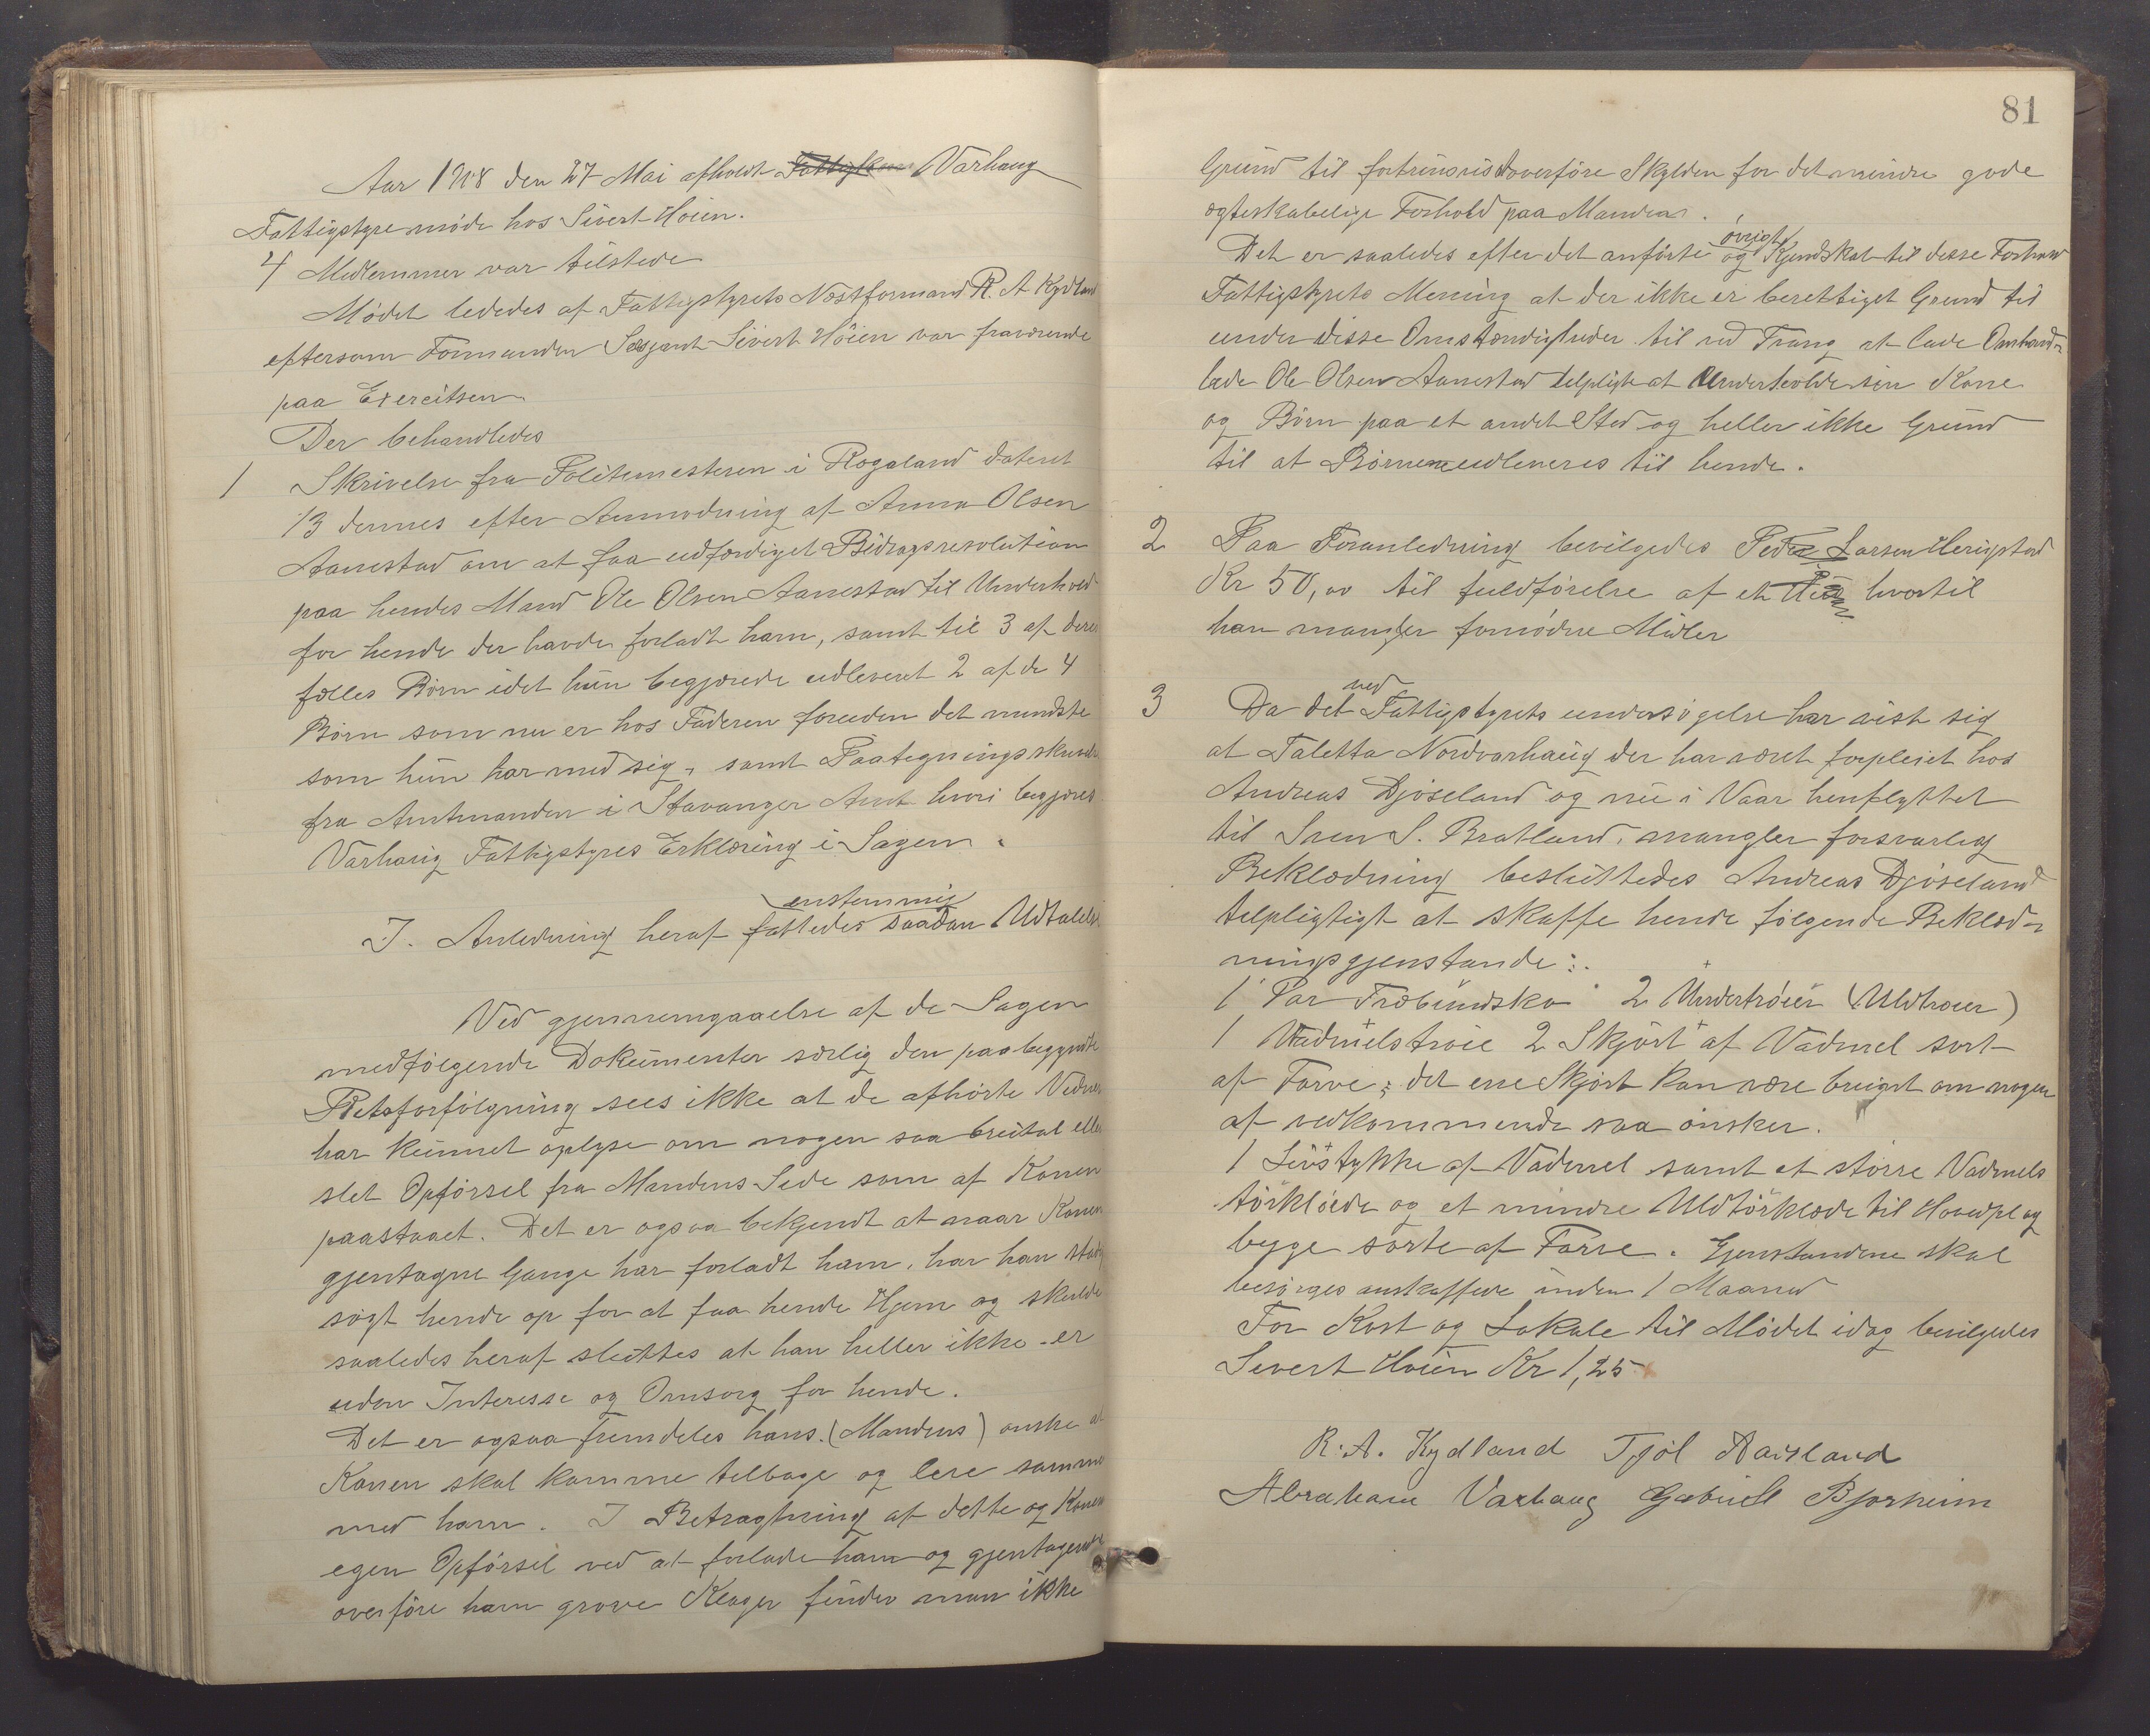 Aar 1908 den 27 Mai afholdt Varhaug
Fattigstyremøde hos Sivert Høien.
4 Medlemmer var tilstede
Mødet lededes af Fattigstyrets Næstformand R. A Kydland
eftersom Formanden Sersjant Sivert Höien var fraværende
paa Exercitsen.
Der behandledes
1 Skrivelse fra Politimesteren i Rogaland dateret
13 dennes efter Anmodning af Anna Olsen
Aanestad om at faa udfærdiget Bidragsresolution
paa hendes Mand Ole Olsen Aanestad til Underhold
for hende der havde forladt ham, samt til 3 af deres
fælles Børn idet hun begjærede udleveret 2 af de 4
Børn som nu er hos Faderen foruden det mindste
som hun har med sig, samt Paategningsskrivelse
fra Amtmanden i Stavanger Amt hvori begjæres
Varhaug Fattigstyres Erklæring i Sagen.
enstemmig
I. Anledning heraf fattedes saadan Udtalelse
Ved gjennemgaaelse af de Sagen
medfølgende Dokumenter særlig den paabegyndte
Retsforfölgning sees ikke at de afhörte Vidner
har kunnet oplyse om nogen saa brutal eller
slet Opførsel fra Mandens Side som af Konen
paastaaet. Det er ogsaa bekjendt at naar Konen
gjentagne Gange har forladt ham, har han stadig
søgt hende op for at faa hende Hjem og skulde
saaledes heraf sluttes at han heller ikke er
uden Interesse og Omsorg for hende.
Det er ogsaa fremdeles hans (Mandens) ønske at
Konen skal komme tilbage og leve sammen
med ham. I Betragtning af dette og Konens
egen Opførsel ved at forlade ham og gjentagende
overføre ham grove Klager finder man ikke
81
Grund til fortrinsvis at overføre Skylden for det mindre gode
ægteskabelige Forhold paa Manden.
øvrigt
Det er saaledes efter det anførte og Kjendskab til disse Forhold
Fattigstyrets Mening at der ikke er berettiget Grund til
under disse Omstændigheder til ved Tvang at lade Omhand-
lede Ole Olsen Aanestad tilpligte at Underholde sin Kone
og Børn paa et andet Sted og heller ikke Grund
til at Børnene udleveres til hende.
2 Paa Foranledning bevilgedes Peder Larsen Herigstad
Kr 50,00 til fuldførelse af et hvortil
han mangler fornødne Midler
ved
3 Da det Fattigstyrets undersøgelse har vist sig
at Taletta Nordvarhaug der har været forpleiet hos
Andreas Djøseland og nu i Vaar henflyttet
til Sven S. Bratland, mangler forsvarlig
Beklædning besluttedes Andreas Djøseland
tilpligtigt at skaffe hende følgende Beklæd-
ningsgjenstande:
1 Par Træbundsko 2 Undertrøier (Uldtrøier)
1 Vadmelstrøie 2 Skjørt af Vadmel sort
af Farve; det ene Skjørt kan være brugt om nogen
af vedkommende saa ønsker.
1 Livstykke af Vadmel samt et større Vadmels
tørklæde og et mindre Uldtörklæde til Hovedplag
begge sorte af Farve. Gjenstandene skal
besørges anskaffede inden 1 Maaned
For Kost og Lokale til Mødet idag bevilgedes
Sivert Høien Kr 1,25
R. A. Kydland Tjøl Aarsland
Abraham Varhaug Gabriell Bjorheim